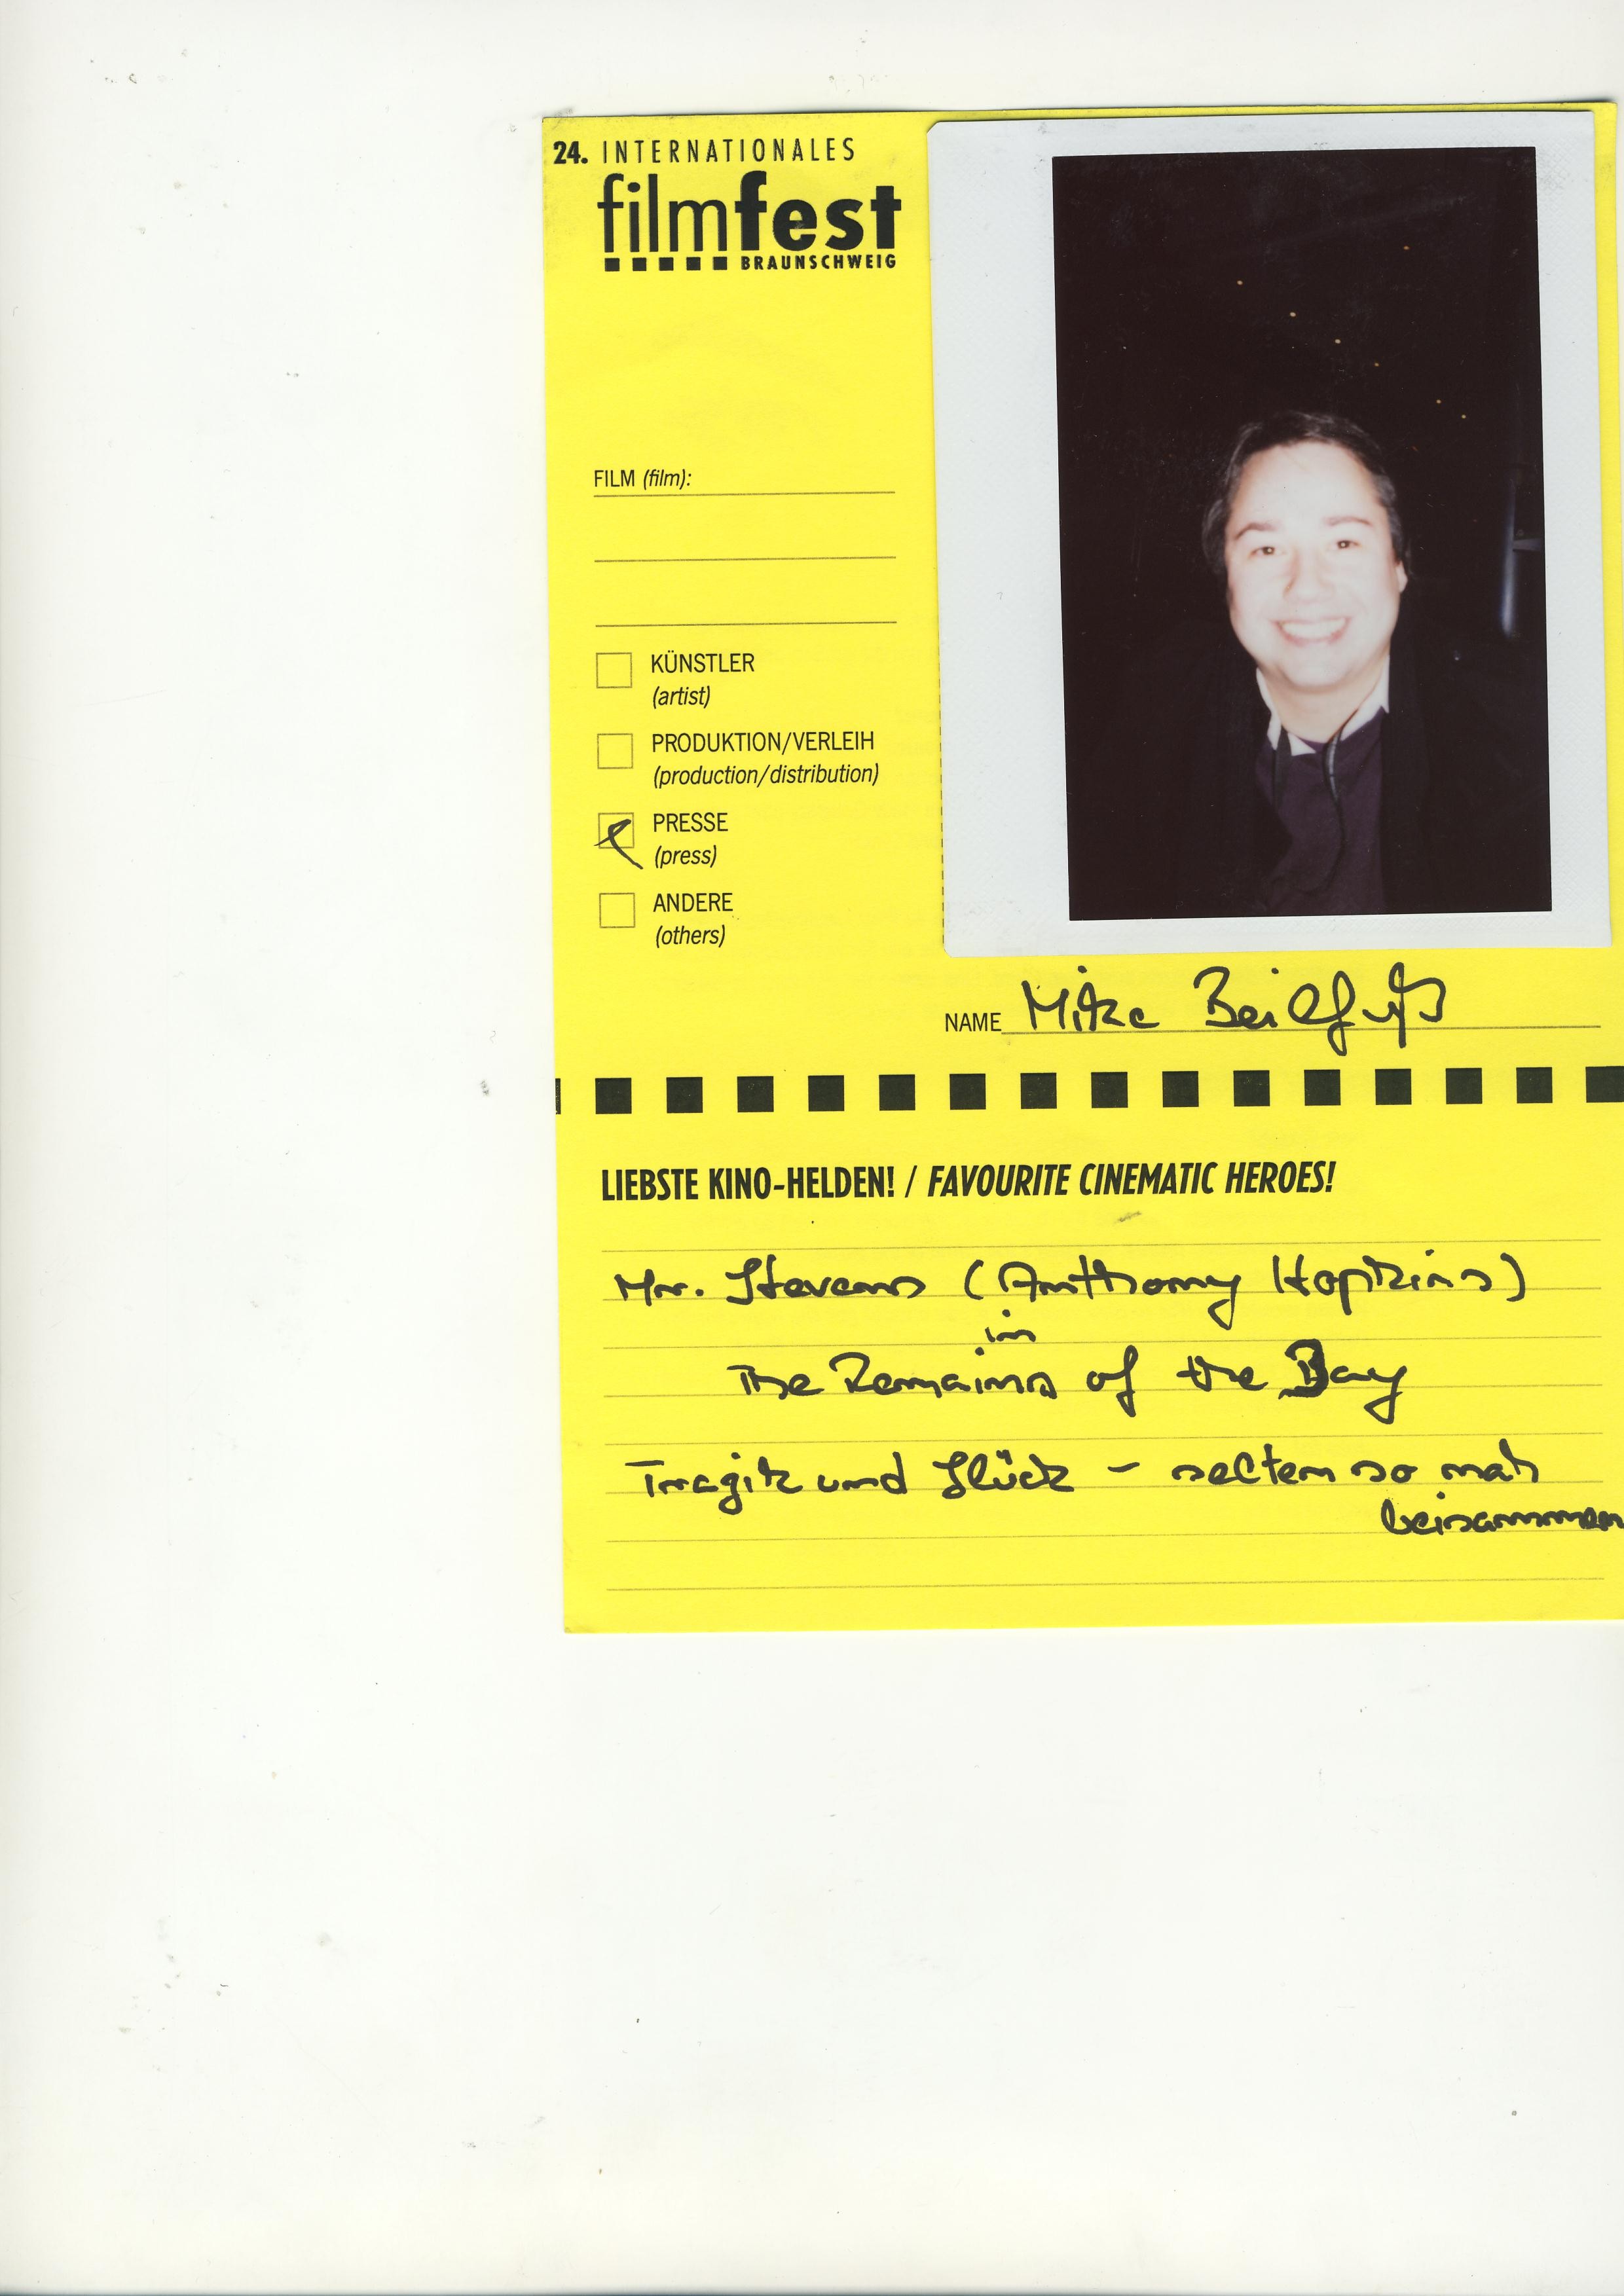 24. INTERNATIONALES
filmfest
BRAUNSCHWEIG
FILM (film):
KÜNSTLER
(artist)
PRODUKTION/VERLEIH
(production/distribution)
PRESSE
(press)
ANDERE
(others)
NAME Mike Beilfuß
LIEBSTE KINO-HELDEN! / FAVOURITE CINEMATIC HEROES!
Mr. Stevens (Anthony Hopkins)
in
The Remains of the Day
Tragik und Glück - selten so nah
beisammen